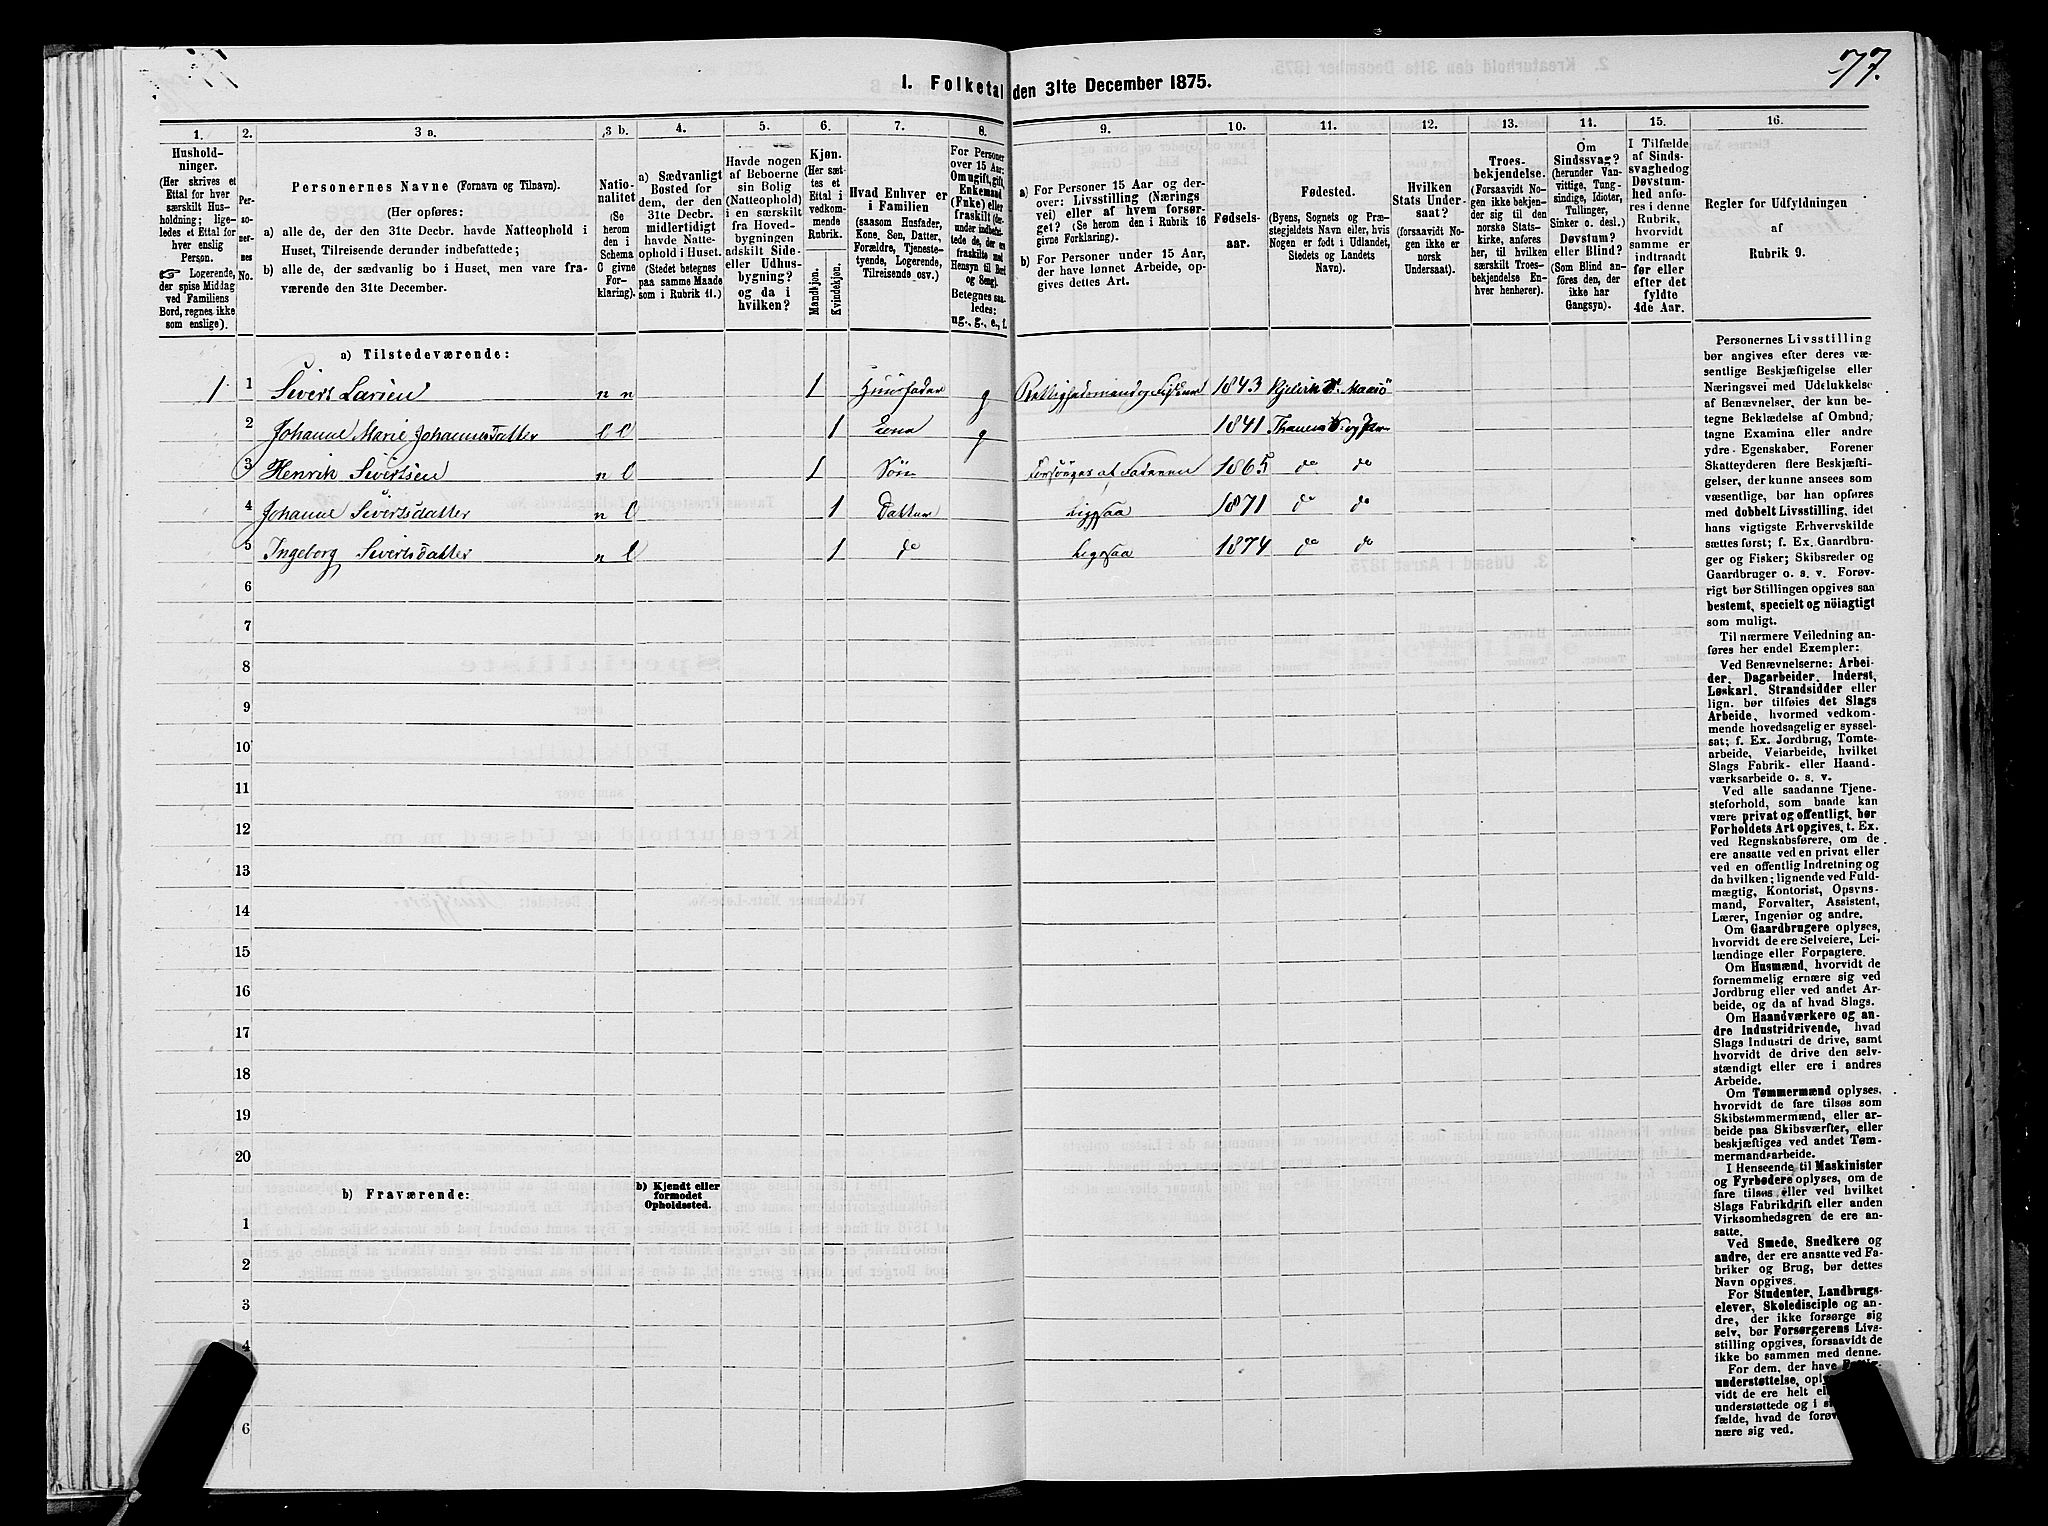 77.
I. Folketal den 31te December 1875.
1. 2. 3 a. 3 b. 4. 5. 6. 7. 8. 9. 10. 11. 12. 13. 14. 15. 16.
Hushold-
ninger.
(Her skrives et
Ettal for hver
særskilt Hus-
holdning; lige-
ledes et Ettal for
hver enslig
Person.
☞ Logerende,
der spise Middag
ved Familiens
Bord, regnes ikke
som enslige).
Per-
so-
ner-
nes
No.
Personernes Navne (Fornavn og Tilnavn).
(Her opføres:
a) alle de, der den 31te Decbr. havde Natteophold i
Huset, Tilreisende derunder indbefattede;
b) alle de, der sædvanlig bo i Huset, men vare fra-
værende den 31te December.
Natio-
nalitet
(Se
herom
den i
Schema
C givne
For-
klaring).
a) Sædvanligt
Bosted for
dem, der den
31te Decbr.
midlertidigt
havde Natte-
ophold i Huset.
(Stedet betegnes
paa samme Maade
som i Rubrik 11.)
Havde nogen
af Beboerne
sin Bolig
(Natteophold)
i en særskilt
fra Hoved-
bygningen
adskilt Side-
eller Udhus-
bygning?
og da i
hvilken?
Kjøn.
(Her sæt-
tes et
Ettal i
vedkom-
mende
Rubrik.
Mandkjøn.
Kvindekjøn.
Hvad Enhver er
i Familien
(saasom Husfader,
Kone, Søn, Datter,
Forældre, Tjeneste-
tyende, Logerende,
Tilreisende osv.)
For Personer
over 15 Aar:
Om ugift, gift,
Enkemand
(Enke) eller
fraskilt (der-
under indbefat-
tede de, der er
fraskilte med
Hensyn til Bord
og Seng).
Betegnes saa-
ledes:
ug., g., e., f.
a) For Personer 15 Aar og der-
over: Livsstilling (Nærings
vei) eller af hvem forsør-
get? (Se herom den i Rubrik 16
givne Forklaring).
b) For Personer under 15 Aar,
der have lønnet Arbeide, op-
gives dettes Art.
Fødsels-
aar.
Fødested.
(Byens, Sognets og Præ-
stegjeldets Navn eller, hvis
Nogen er født i Udlandet,
Stedets og Landets
Navn).
Hvilken
Stats Under-
saat?
(forsaavidt No-
gen ikke er
norsk
Undersaat).
Troes-
bekjendelse.
(Forsaavidt No-
gen ikke bekjen-
der sig til den
norske Stats-
kirke, anføres
her, til hvilken
særskilt Troes-
bekjendelse En-
hver henhører).
Om
Sindssvag?
(herunder Van-
vittige, Tung-
sindige, Idioter,
Tullinger,
Sinker o. desl.)
Døvstum?
eller Blind?
(Som Blind an-
føres den, der
ikke har
Gangsyn).
I Tilfælde
af Sinds-
svaghed og
Døvstum-
hed anfø-
res i denne
Rubrik,
hvorvidt
samme er
indtraadt
før eller
efter det
fyldte
4de Aar.
Regler for Udfyldningen
af
Rubrik 9.
a) Tilstedeværende:
1 1 Sivert Larsen n n 1 Huusfader g 1843 Maasö
2 Johanne Marie Johannesdatter l l 1 Kone g 1841
3 Henrik Sivertsen n l 1 Søn Forsörges af Faderen 1865 do do
4 Johanne Sivertsdatter n l 1 Datter Ligesaa 1871 do do
5 Ingeborg Sivertsdatter n l 1 do Ligesaa 1874 do do
6
7
8
9
10
11
12
13
14
15
16
17
18
19
20
b) Fraværende:
b) Kjendt eller
formodet
Opholdssted.
1
2
3
4
6
Personernes Livsstilling
bør angives efter deres væ-
sentlige Beskjæftigelse eller
Næringsvei med Udelukkelse
af Benævnelser, der kun be-
tegne Beklædelse af Ombud,
tagne Examina eller andre
ydre Egenskaber. Forener
Skatteyderen flere Beskjæfti-
gelser, der kunne ansees som
væsentlige, bør han opføres
med dobbelt Livsstilling, idet
hans vigtigste Erhvervskilde
sættes først; f. Ex. Gaardbru-
ger og Fisker; Skibsreder og
Gaardbruger o. s. v. Forøv-
rigt bør Stillingen opgives saa
bestemt, specielt og nöiagtigt
som muligt.
Til nærmere Veiledning an-
føres her endel Exempler:
Ved Benævnelserne: Arbei-
der, Dagarbeider, Inderst,
Løskarl, Strandsidder eller
lign. bør tilføies det Slags
Arbeide, hvormed vedkom-
mende hovedsagelig er syssel-
sat; f. Ex. Jordbrug, Tomte-
arbeide, Veiarbeide, hvilket
Slags Fabrik- eller Haand-
værksarbeide o. s. v.
Ved alle saadanne Tjene-
steforhold, som baade kan
være privat og offentligt, bør
Forholdets Art opgives, t. Ex.
ved Regnskabsførere, om de
ere ansatte ved en privat eller
ved en offentlig Indretning og
da hvilken; lignende ved Fuld-
mægtig, Kontorist, Opsyns-
mand, Forvalter, Assistent,
Lærer, Ingeniør og andre.
Om Gaardbrugere oplyses,
hvorvidt de ere Selveiere, Lei-
lændinge eller Forpagtere.
Om Husmænd, hvorvidt de
fornemmelig ernære sig ved
Jordbrug eller ved andet Ar-
beide, og da af hvad Slags.
Om Haandværkere og an-
dre Industridrivende, hvad
Slags Industri de drive, samt
hvorvidt de drive den selv-
stændigt eller ere i andres
Arbeide.
Om Tømmermænd oplyses,
hvorvidt de fare tilsøs som
Skibstømmermænd, eller ar-
beide paa Skibsværfter, eller
beskjæftiges ved andet Tøm-
mermandsarbeide.
I Henseende til Maskinister
og Fyrbødere oplyses, om de
fare tilsøs eller ved hvilket
Slags Fabrikdrift eller anden
Virksomhedsgren de ere an-
satte.
Ved Smede, Snedkere og
andre, der ere ansatte ved Fa-
briker og Brug, bør dettes
Navn opgives.
For Studenter, Landbrugs-
elever, Skoledisciple og an-
dre, der ikke forsørge sig
selv, bør Forsørgerens Livs-
stilling opgives, forsaavidt de
ikke bo sammen med denne.
For dem, der have
understøttelse,
vidt de ere helt
understøttede og i
fælde, hvad de
nære sig ved.